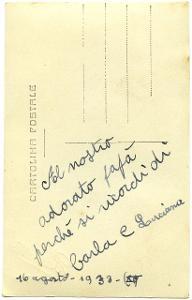 CARTOLINA POSTALE
Al nostro
adorato papà
perchè si ricordi di
Carla e Luciana
16 agosto - 1933 -